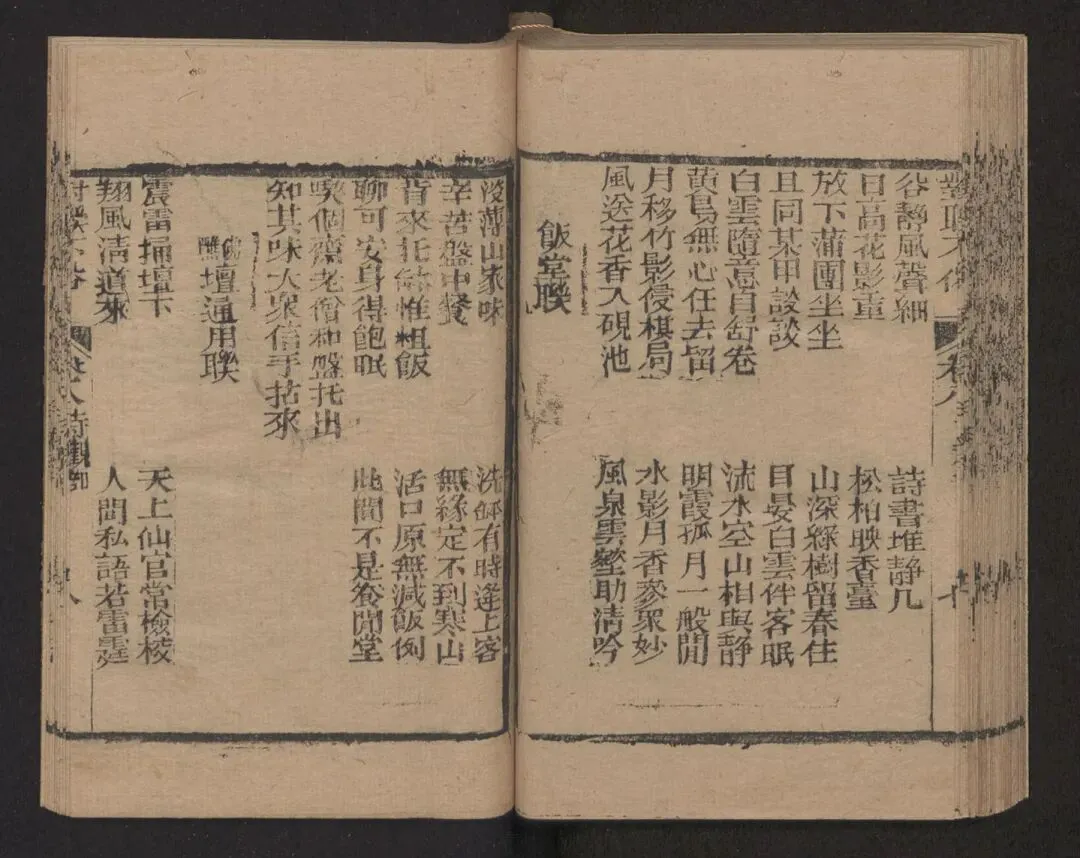 卷八
谷靜風聲細
詩書堆静几
日高花影重
松柏映香臺
放下蒲團坐坐
山深綠樹留春住
且同某甲談談
日晏白雲伴客眠
白雲隨意自舒卷
流水空山相與静
黄鳥無心任去留
明霞孤月一般閒
月移竹影侵棋局
水影月香參眾妙
風送花香入硯池
風泉雲壑助清吟
飯堂聯
淡薄山家味
洗缽有時逢上客
辛苦盤中餐
無緣定不到寒山
背來托缽惟粗飯
活口原無減飯例
聊可安身得飽眠
此間不是養閒堂
喫個齋老僧和盤托出
知其味大衆信手拈來
壇通用聯
震雷掃壇下
天上仙官常檢校
翔風清道來
人間私語若雷霆
卷八詩
八